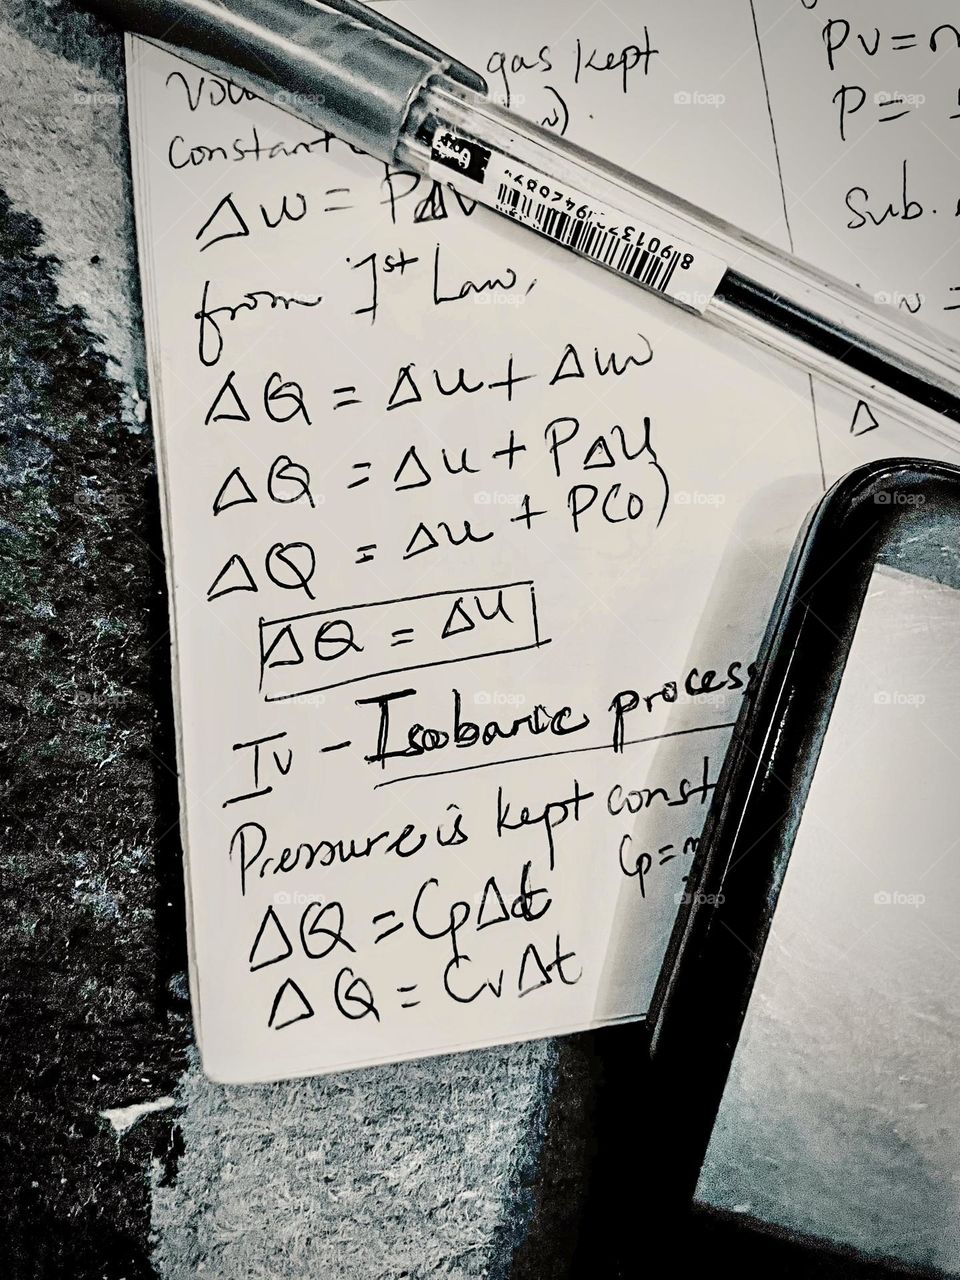 gas kept
Constant
Δw = PΔv
from Ist Law,
ΔQ = Δu + Δw
ΔQ = Δu + PΔU
ΔQ = Δu + P(o)
ΔQ = Δu
Iv - Isobaric process
Pressure is kept const
Cp =
ΔQ = CpΔt
ΔQ = CvΔt
Pv = n
P =
Sub.
v =
Δ
foap